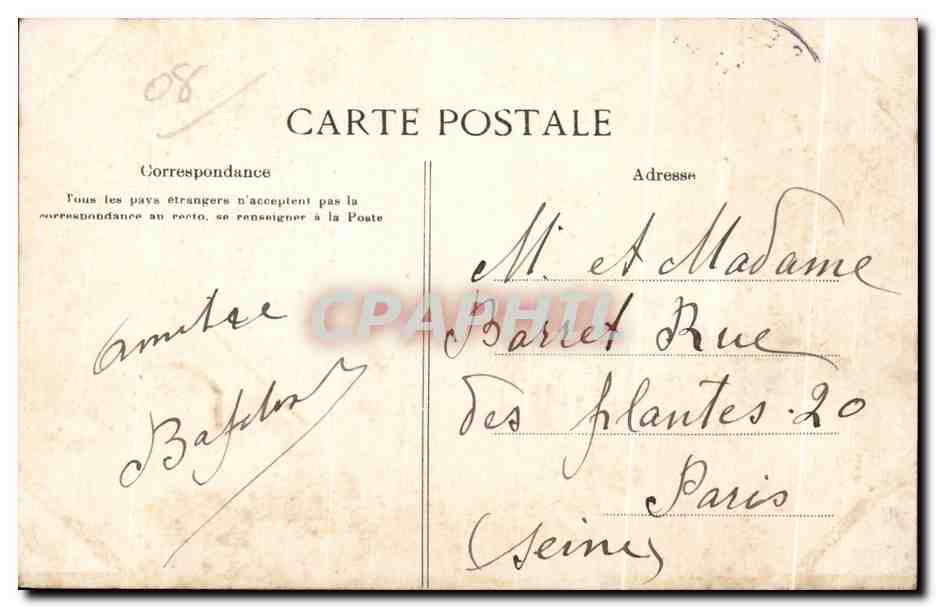 08
CARTE POSTALE
Correspondance
Tous les pays étrangers n'acceptent pas la
correspondance au recto, se renseigner à la Poste
Adresse
M. et Madame
Barret Rue
des plantes. 20
Paris
(Seine)
CPAPHIL